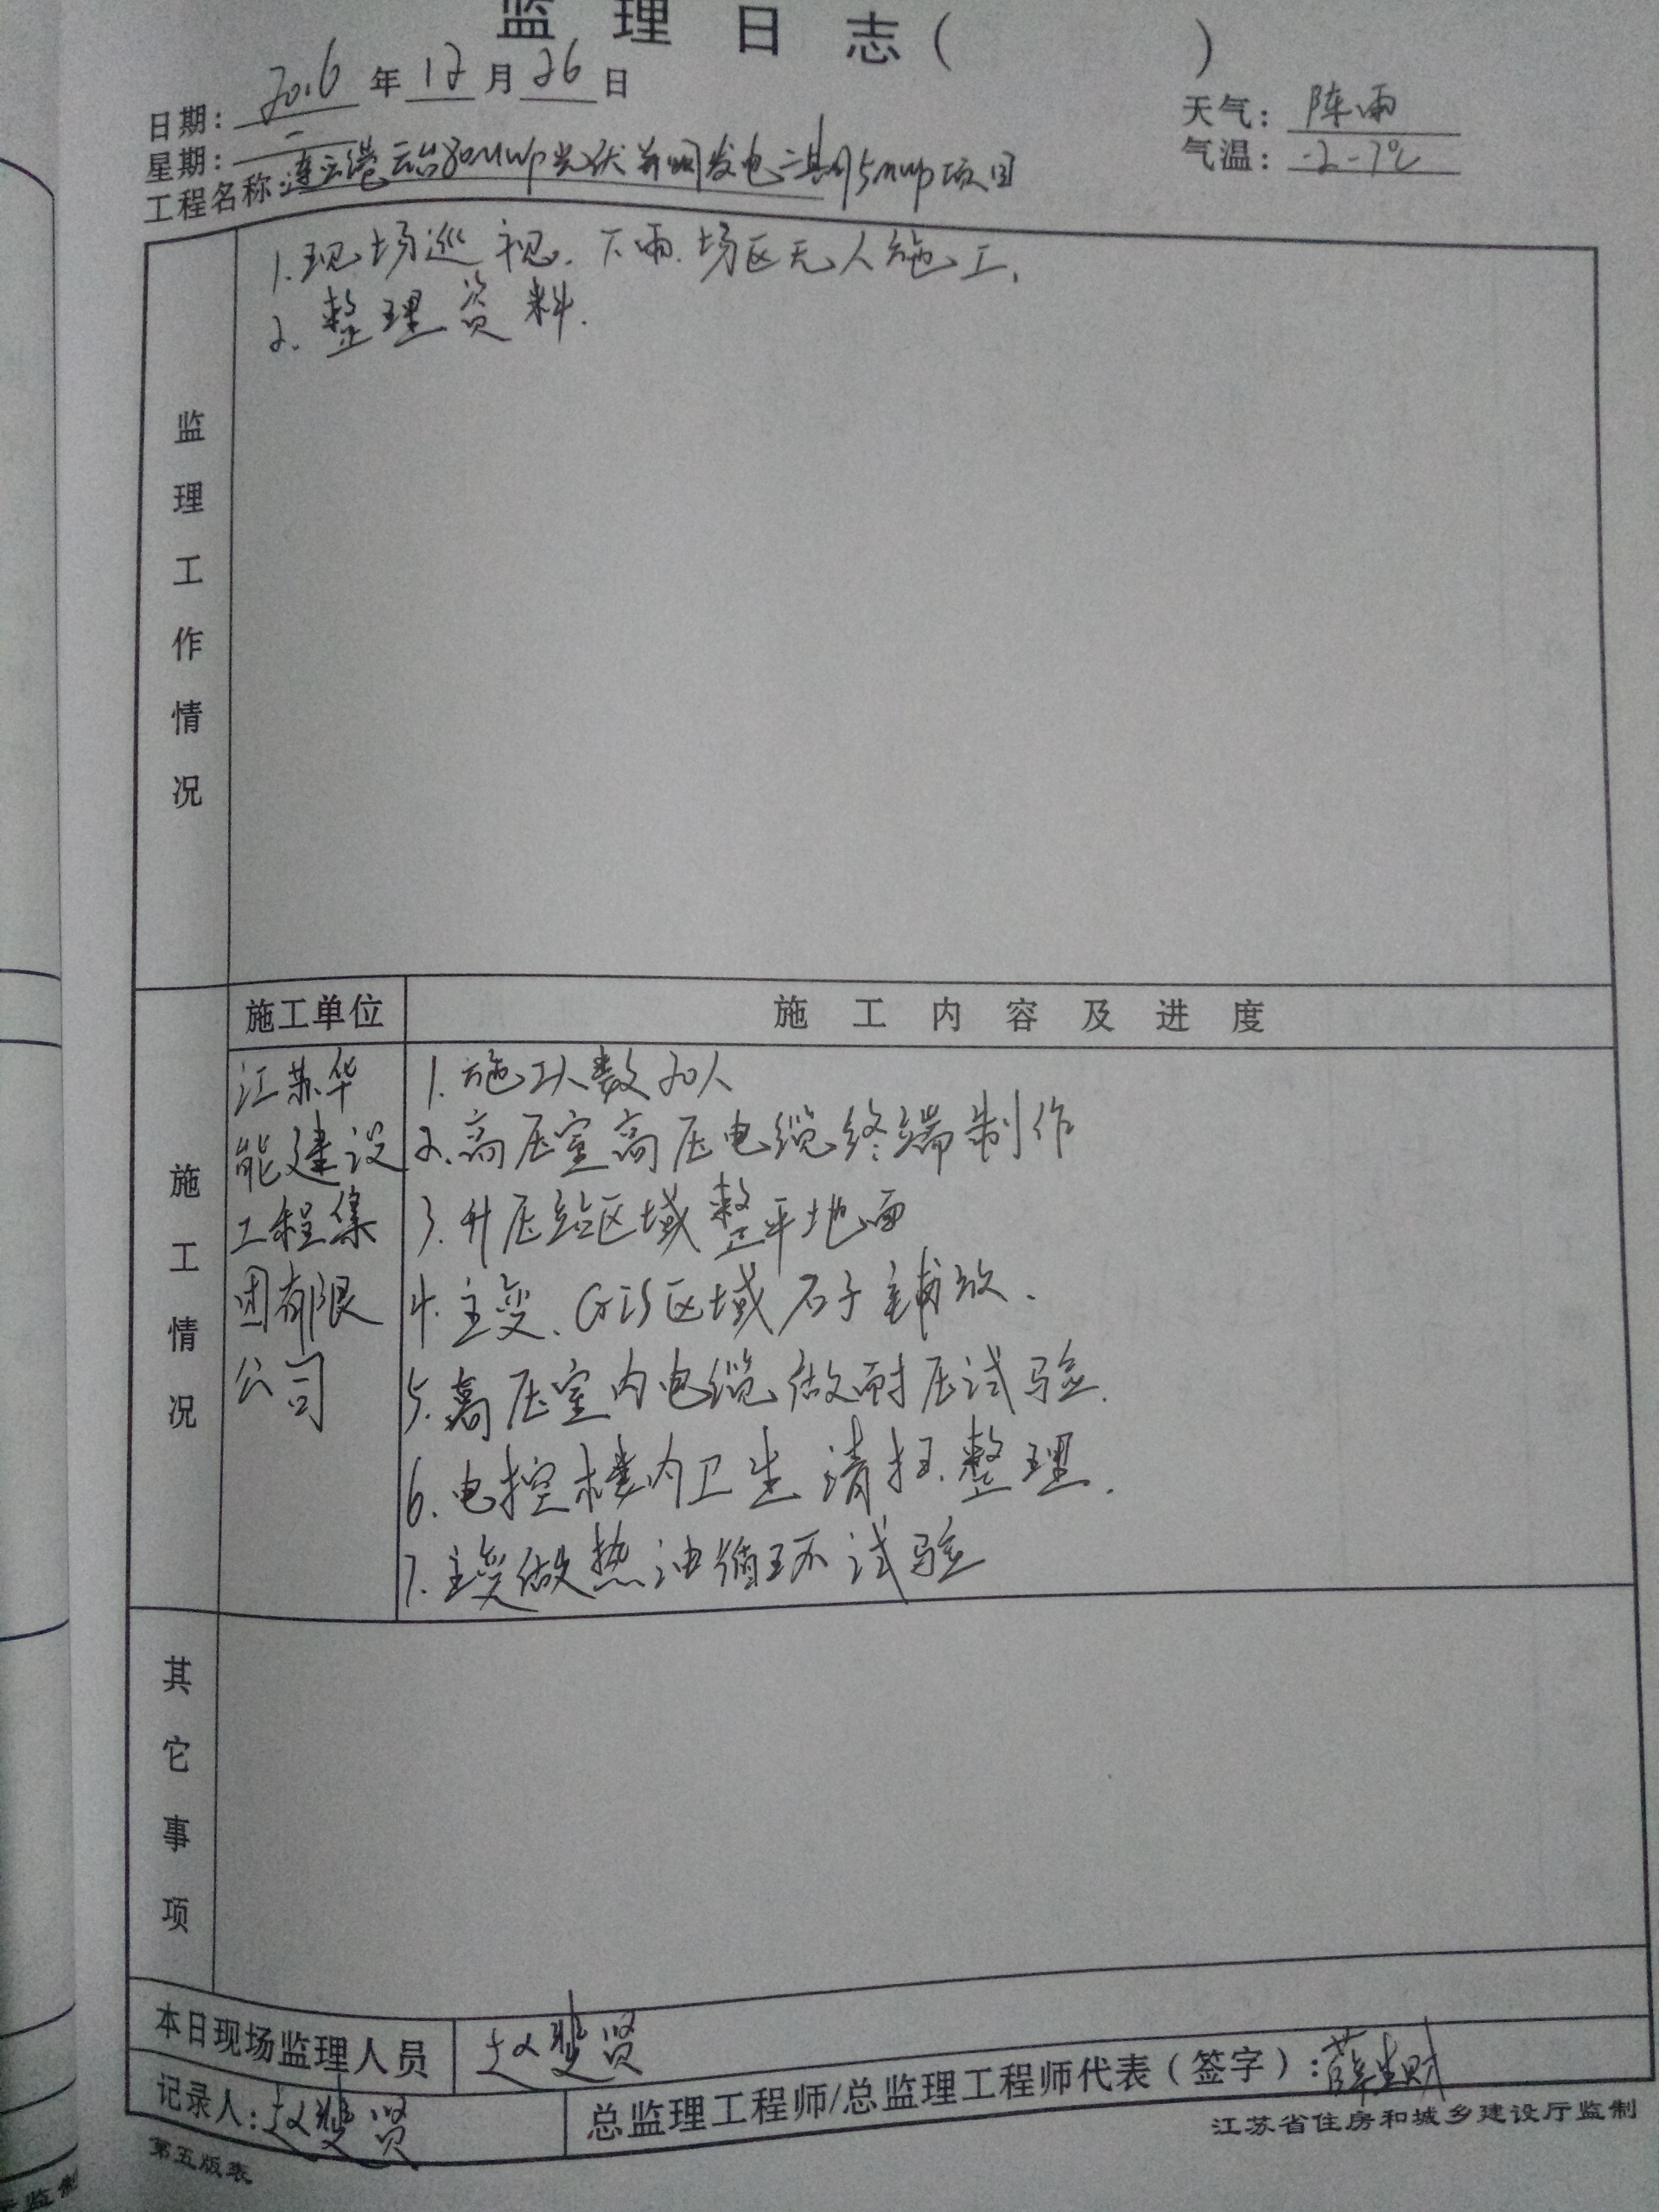 监 理 日 志 ( )
日期: 2016 年 12 月 26 日
天气: 阵雨
星期: 一
气温: -2-7℃
工程名称: 连云港云台80MWp光伏并网发电二期15MWp项目
监理工作情况
1.现场巡视.下雨.场区无人施工.
2.整理资料.
施工情况
施工单位
施 工 内 容 及 进 度
江苏华
能建设
工程集
团有限
公司
1.施工人数20人
2.高压室高压电缆终端制作
3.升压站区域整平地面
4.主变、GIS区域石子铺放.
5.高压室内电缆做耐压试验.
6.电控楼内卫生清扫.整理.
7.主变做热油循环试验
其它事项
本日现场监理人员
赵楚贤
记录人: 赵楚贤
总监理工程师/总监理工程师代表(签字): 薛生财
第五版表
江苏省住房和城乡建设厅监制